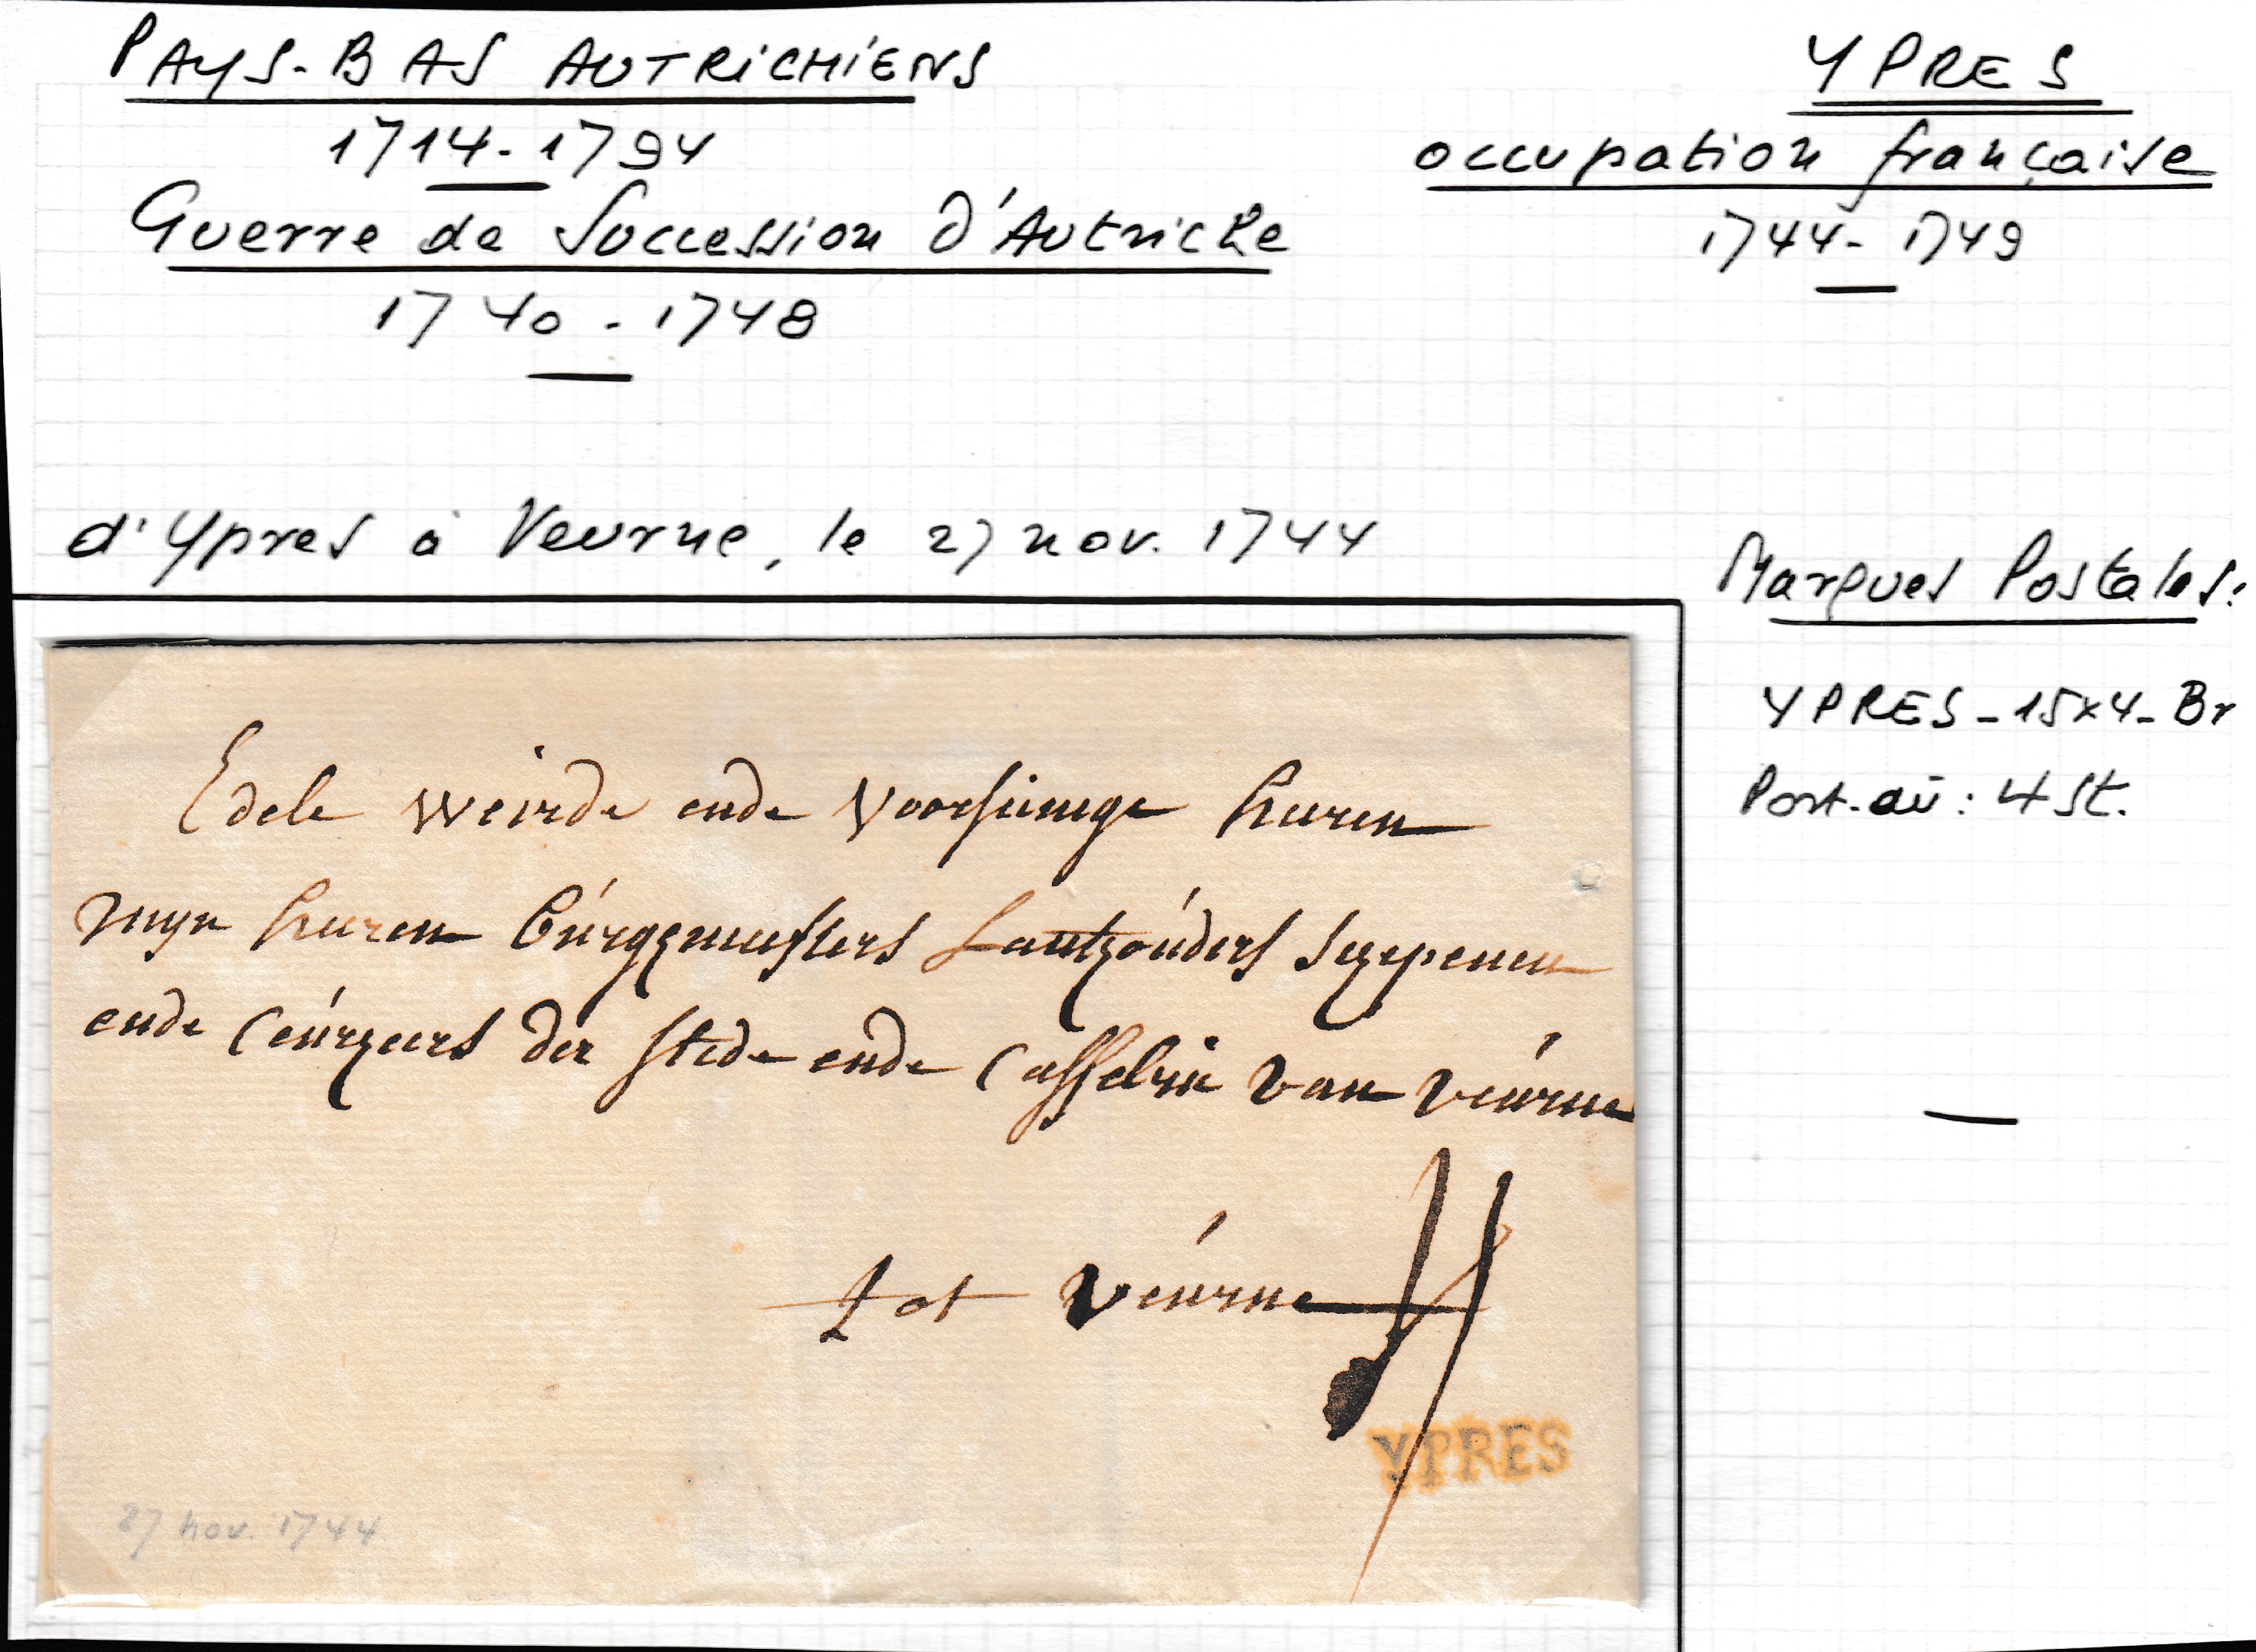 PAYS-BAS AUTRICHIENS
1714-1794
Guerre de Succession d'Autriche
1740-1748
YPRES
occupation française
1744-1749
d'Ypres à Veurne, le 27 nov. 1744
Marques Postales:
YPRES-15x4-Br
Port-dû: 4 St.
Edele Weirde ende Voorsienige heeren
Myn heeren Búrgemeesters Lanthoúders Schepenen
ende Ceúrheers der stede ende Casselrie van veúrne
tot veúrne
YPRES
27 nov. 1744